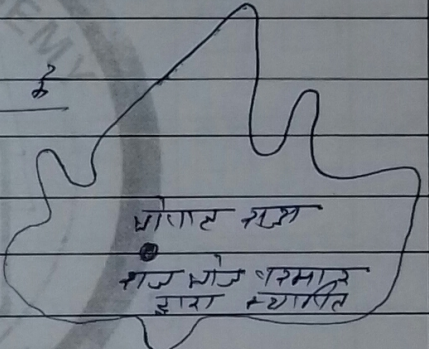 EMY
है
भोपाल राज्य
राजा भोज परमार
द्वारा स्थापित